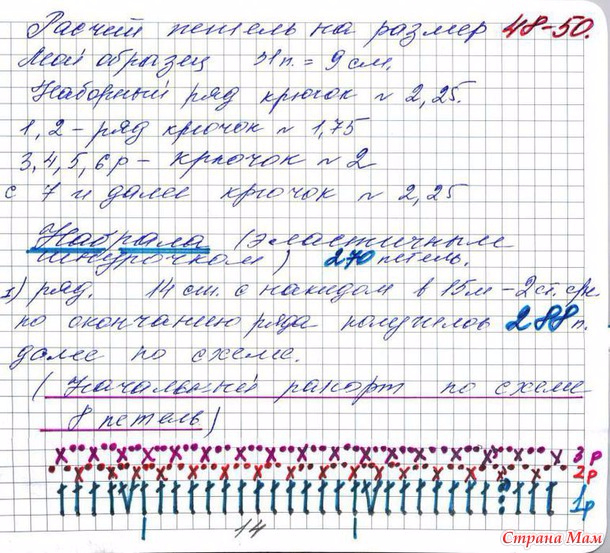 Расчет петель на размер 48-50.
Мой образец 31п. = 9 см.
Наборный ряд крючок № 2,25.
1,2 - ряд крючок № 1,75
3,4,5,6 р - крючок № 2
с 7 и далее крючок № 2,25
Набрала (эластичным
шнурочком) 270 петель.
1) ряд. 14 ст. с накидом в 15м - 2 ст. с/н.
по окончанию ряда получилось 288 п.
далее по схеме.
(Начальный рапорт по схеме
8 петель)
3 р
2 р
1 р
14
Страна Мам